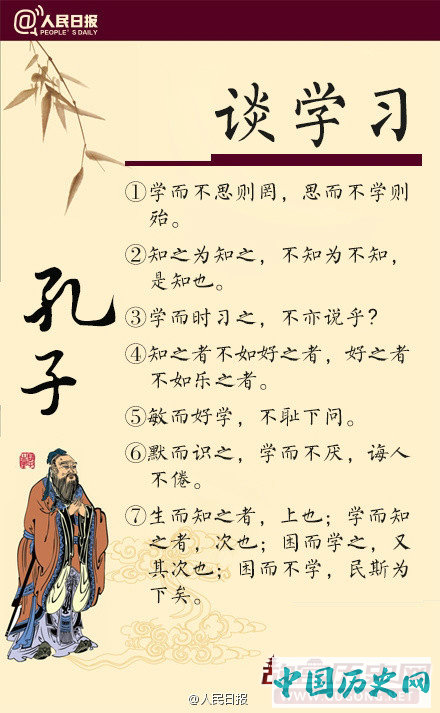 @人民日报
PEOPLE'S DAILY
谈学习
①学而不思则罔，思而不学则
殆。
②知之为知之，不知为不知，
是知也。
③学而时习之，不亦说乎？
④知之者不如好之者，好之者
不如乐之者。
⑤敏而好学，不耻下问。
⑥默而识之，学而不厌，诲人
不倦。
⑦生而知之者，上也；学而知
之者，次也；困而学之，又
其次也；困而不学，民斯为
下矣。
孔子
中国历史网
@人民日报